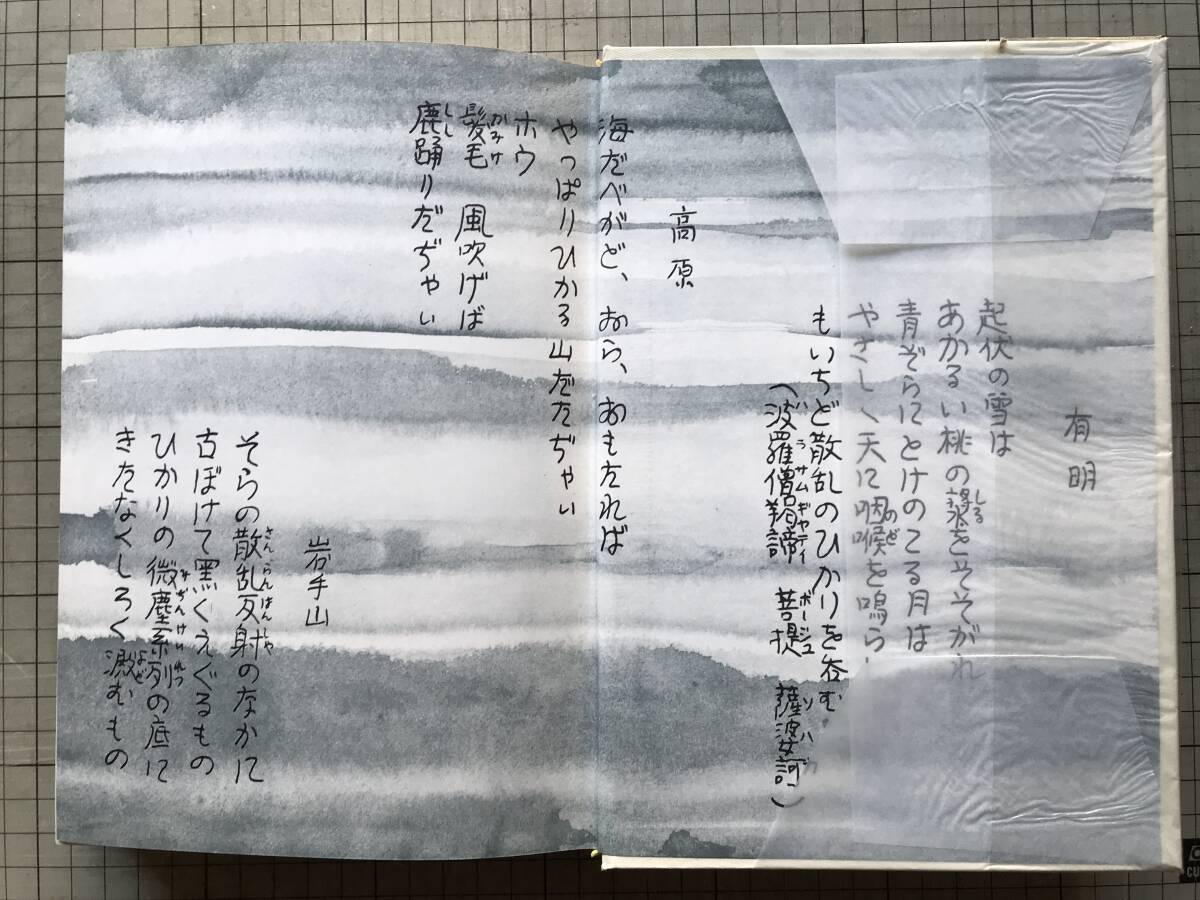 有明
起伏の雪は
あかるい桃の漿をそそがれ
青ぞらにとけのこる月は
やさしく天に咽喉を鳴ら
もいちど散乱のひかりを呑む
（波羅僧羯諦 菩提 薩婆訶）
高原
海だべがど、おら、おもたれば
やっぱりひかる山だたぢゃい
ホウ
髪毛 風吹げば
鹿踊りだぢゃい
岩手山
そらの散乱反射のなかに
古ぼけて黒くえぐるもの
ひかりの微塵系列の底に
きたなくしろく澱むもの